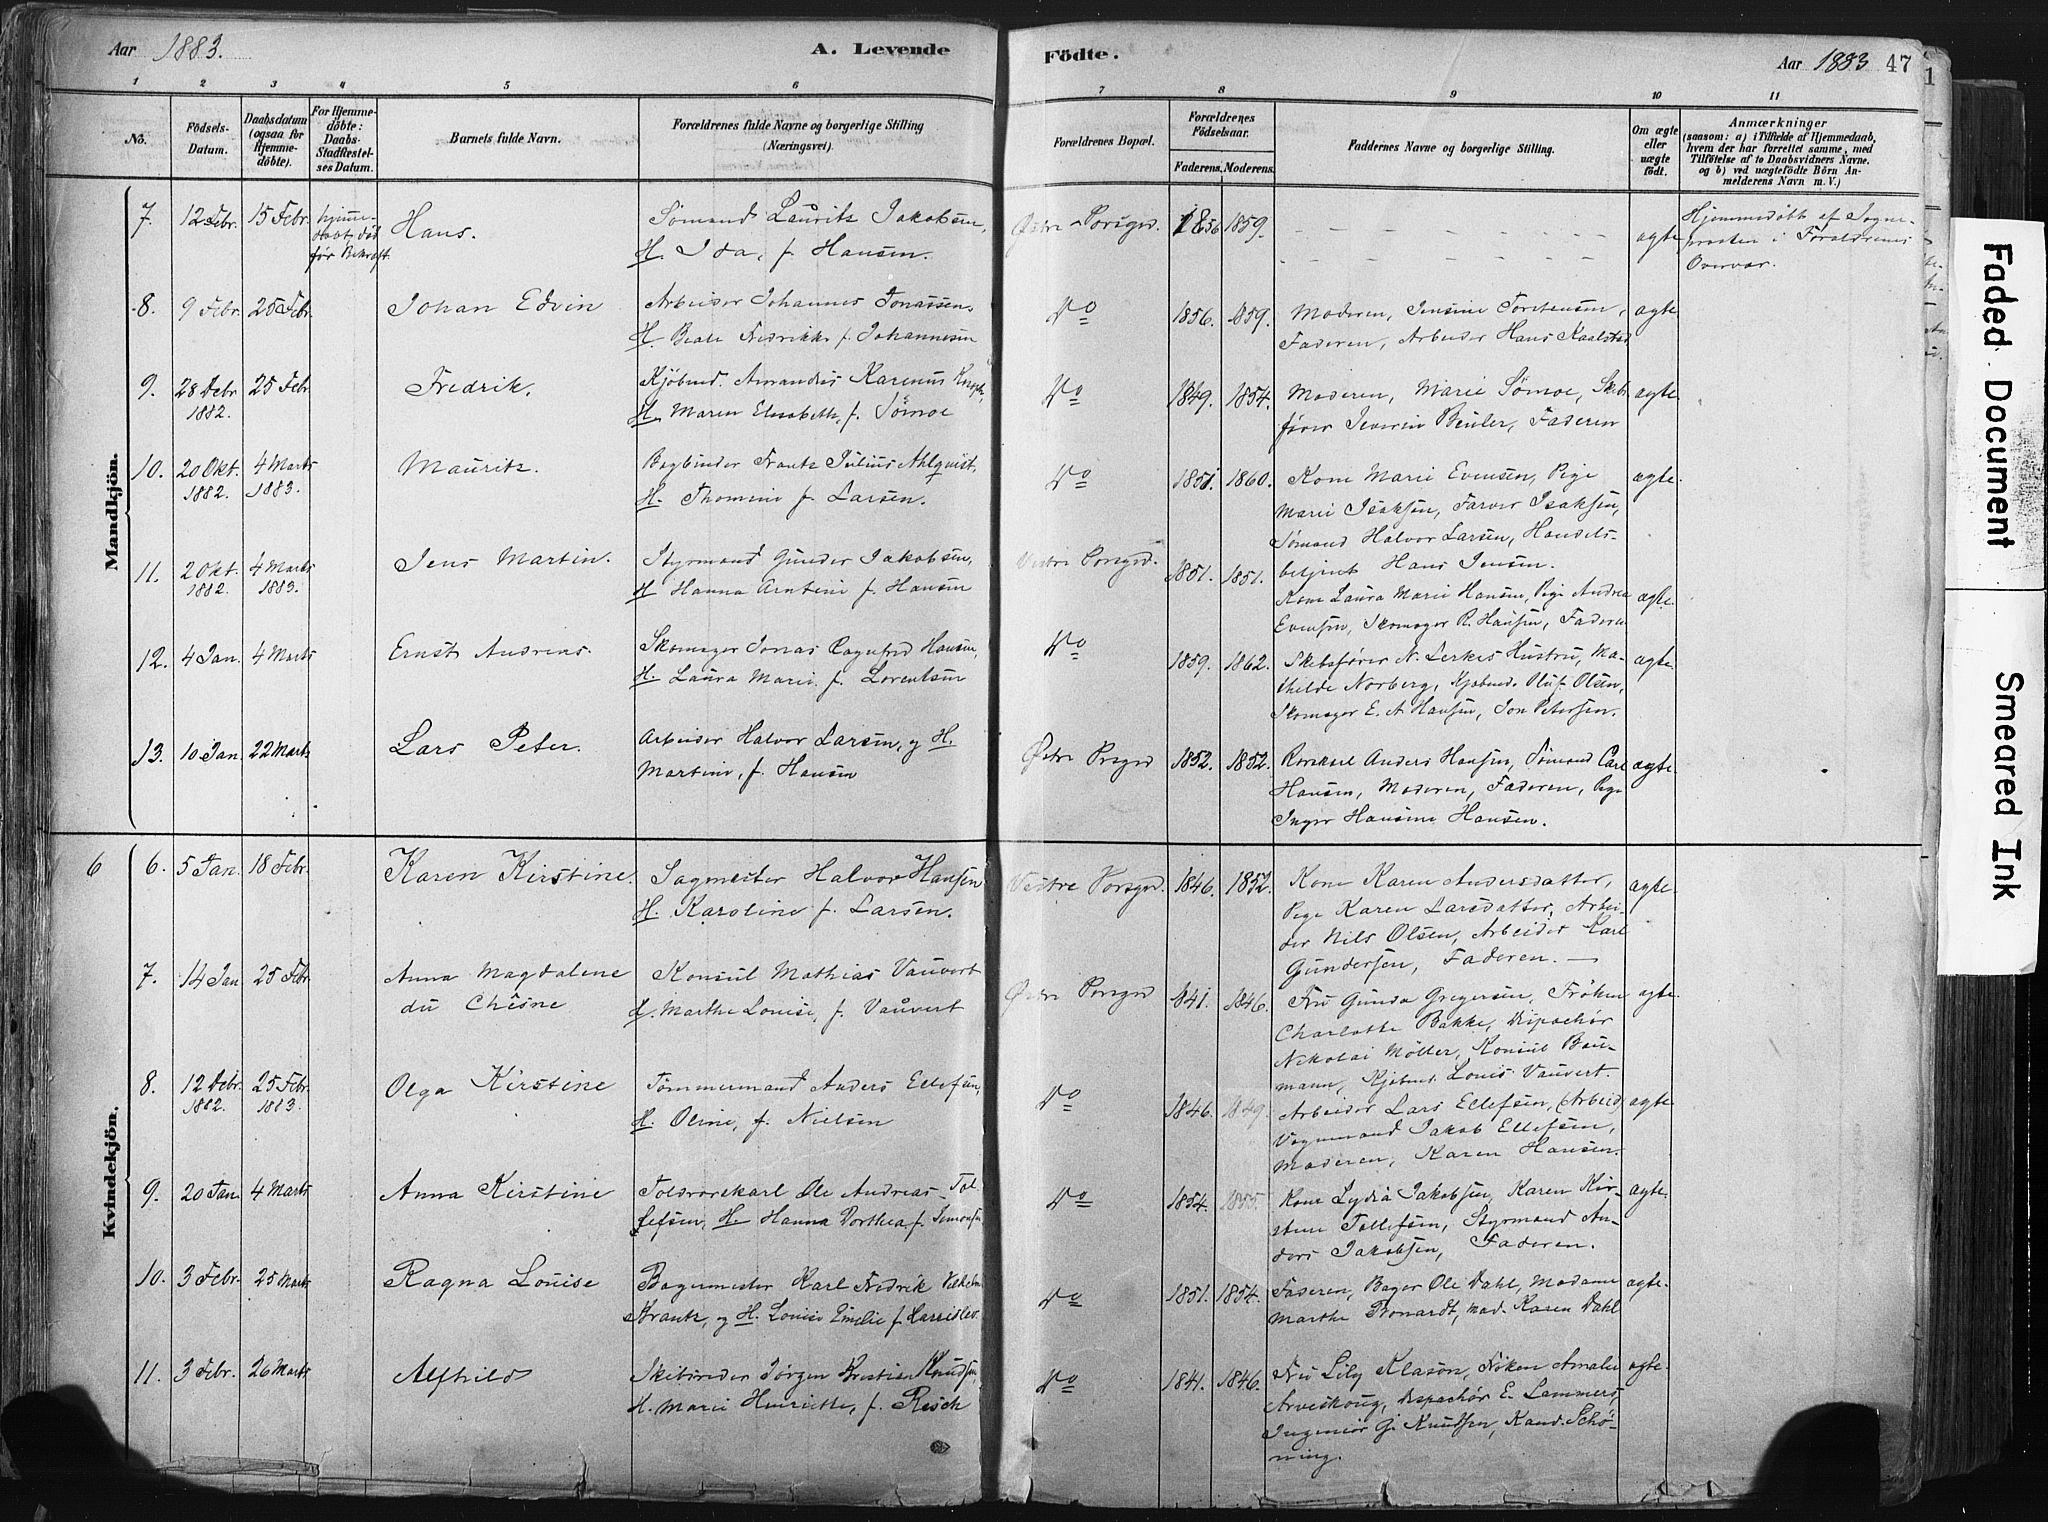 Aar 1883. A. Levende Födte. Aar 1883 47
1 2 3 4 5 6 7 8 9 10 11
No.
Födsels-Datum.
Daabsdatum (ogsaa for Hjemme-döbte).
For Hjemme-döbte: Daabs-Stadfæstelses Datum.
Barnets fulde Navn.
Forældrenes fulde Navne og borgerlige Stilling
(Næringsvei).
Forældrenes Bopæl.
Forældrenes Födselsaar.
Faderens. Moderens.
Faddernes Navne og borgerlige Stilling.
Om ægte eller uægte födt.
Anmærkninger
(saasom: a) i Tilfælde af Hjemmedaab,
hvem der har forrettet samme, med
Tilföielse af to Daabsvidners Navne.
og b) ved uægtefödte Börn An-
melderens Navn m. V.)
Mandkjön.
7. 12 Febr. 15 Febr. hjemmedøbt, død før Bekræft. Hans. Sømand Laurits Jakobsen,
H. Ida, f. Hansen.
Østre Porsgrd. 1856 1859. ægte
Hjemmedøbt af Sogne-
præsten i Forældrenes
Overvær.
8. 9 Febr. 25 Febr. Johan Edvin Arbeider Johannes Jonassen
H. Beate Fredrikke f. Johannesen
Do 1856. 1859. Moderen, Jensine Torstensen,
Faderen, Arbeider Hans Kaalstad
ægte
9. 28 Debr 1882. 25 Febr Fredrik. Kjøbmd. Amandus Karenus
H. Maren Elisabeth, f. Sømoe
Do 1849. 1854. Moderen, Marie Sømoe, Skibs-
fører Severin Beuler, Faderen
ægte
10. 20 Okt. 1882. 4 Marts 1883. Mauritz. Bogbinder Frantz Julius Ahlqvist,
H. Thomine f. Larsen.
Do 1851. 1860. Kone Marie Evensen, Pige
Marie Isaksen, Farver Isaksen,
Sømand Halvor Larsen, Handels-
betjent Hans Jensen.
ægte
11. 2 Okt. 1882. 4 Marts 1883. Jens Martin. Styrmand Gunder Jakobsen,
H Hanna Arntine f. Hansen
Vestre Porsgrd. 1851. 1851.
Kone Laura Marie Hansen, Pige Andrea
Evensen, Skomager R. Hansen, Faderen
ægte
12. 4 Jan. 4 Marts Ernst Andreas. Skomager Jonas Hansen,
H. Laura Marie f. Lorentsen
Do 1859. 1862. Skibsfører N. Lerkes Hustru, Ma-
thilde Norberg, Kjøbmd. Oluf Olsen,
Skomager E. A Hansen, Jon Petersen.
ægte
13. 10 Jan. 22 Marts Lars Peter. Arbeider Halvor Larsen, og H.
Martine, f. Hansen
Østre Porsgrd 1852. 1852. Rorskarl Anders Hansen, Sømand Carl
Hansen, Moderen, Faderen, Pige
Inger Hansine Hansen.
ægte
Kvindekjön.
6 6. 5 Jan. 18 Febr. Karen Kirstine. Sagmester Halvor Hansen
H. Karoline f. Larsen.
Vestre Porsgrd. 1846. 1852. Kone Karen Andersdatter,
Pige Karen Larsdatter, Arbei-
der Nils Olsen, Arbeider Karl
Gundersen, Faderen.
ægte
7. 14 Jan 25 Febr. Anna Magdalene
du Chêsne
Konsul Mathias Vauvert
H. Marthe Louise, f. Vauvert
Østre Porsgrd 1841. 1846. Fru Gunda Gregersen, Frøken
Charlotte Bakke, Dispachør
Nikolai Möller, Konsul Bau-
mann, Kjøbmd. Louis Vauvert.
ægte
8. 12 Debr. 1882. 25 Febr. 1883. Olga Kirstine Tømmermand Anders Ellefsen,
H. Oline, f. Nielsen
Do 1846. 1849. Arbeider Lars Ellefsen, (Arbeid)
Vognmand Jakob Ellefsen,
Moderen, Karen Hansen.
ægte
9. 20 Jan. 4 Marts Anna Kirstine Toldrorskarl Ole Andreas Tol-
lefsen, H. Hanna Dorthea f. Simonsen
Do 1854. 1855. Kone Lydia Jakobsen, Karen Kir-
stine Tollefsen, Styrmand An-
ders Jakobsen, Faderen.
ægte
10. 3 Febr. 25 Marts Ragna Louise Bagermester Karl Fredrik
Krantz, og H. Louise Emilie f.
Do 1851. 1854. Faderen, Bager Ole Dahl, Madame
Marthe Bonardt, Mad. Karen Dahl
ægte
11. 3 Febr. 26 Marts Alfhild Skibsreder Jørgen Kristian Knudsen,
H. Marie Henriette, f. Resch
Do 1841. 1846. Fru Lily Klasön, Frøken Amalie
Arveskoug, Dispachør E. Lammers,
Ingeniør G. Knudsen, Kand. Schø-
ning.
ægte
Faded Document
Smeared Ink